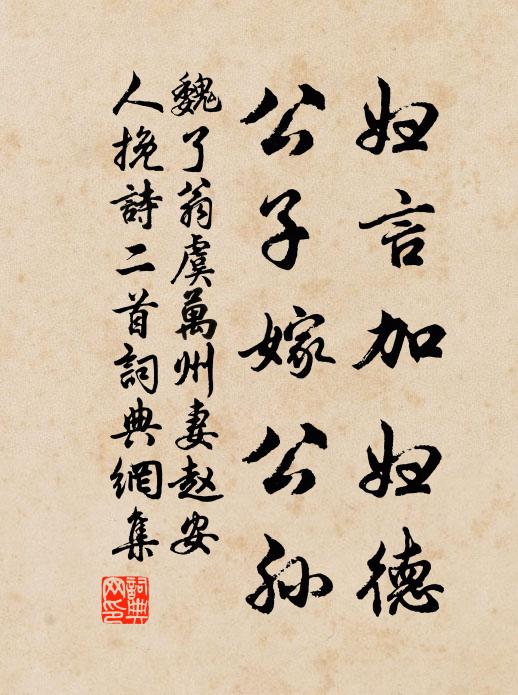 妇言加妇德
公子嫁公孙
魏了翁虞萬州妻赵安
人挽詩二首詞典網集
詞典
网印